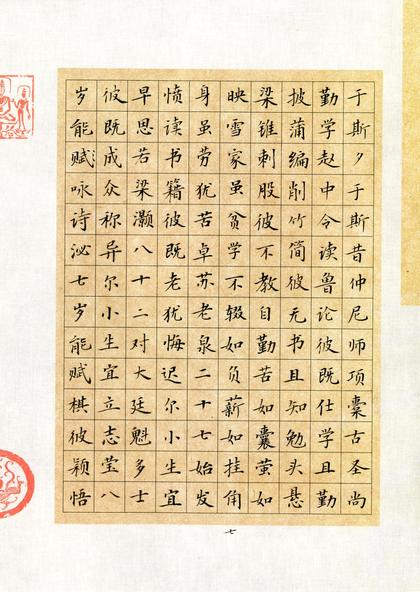 于斯夕于斯昔仲尼师项囊古圣尚
勤学赵中令读鲁论彼既仕学且勤
披蒲编削竹简彼无书且知勉头悬
梁锥刺股彼不教自勤苦如囊萤如
映雪家虽贫学不辍如负薪如挂角
身虽劳犹苦卓苏老泉二十七始发
愤读书籍彼既老犹悔迟尔小生宜
早思若梁灏八十二对大廷魁多士
彼既成众称异尔小生宜立志莹八
岁能赋咏诗泌七岁能赋棋彼颖悟
七